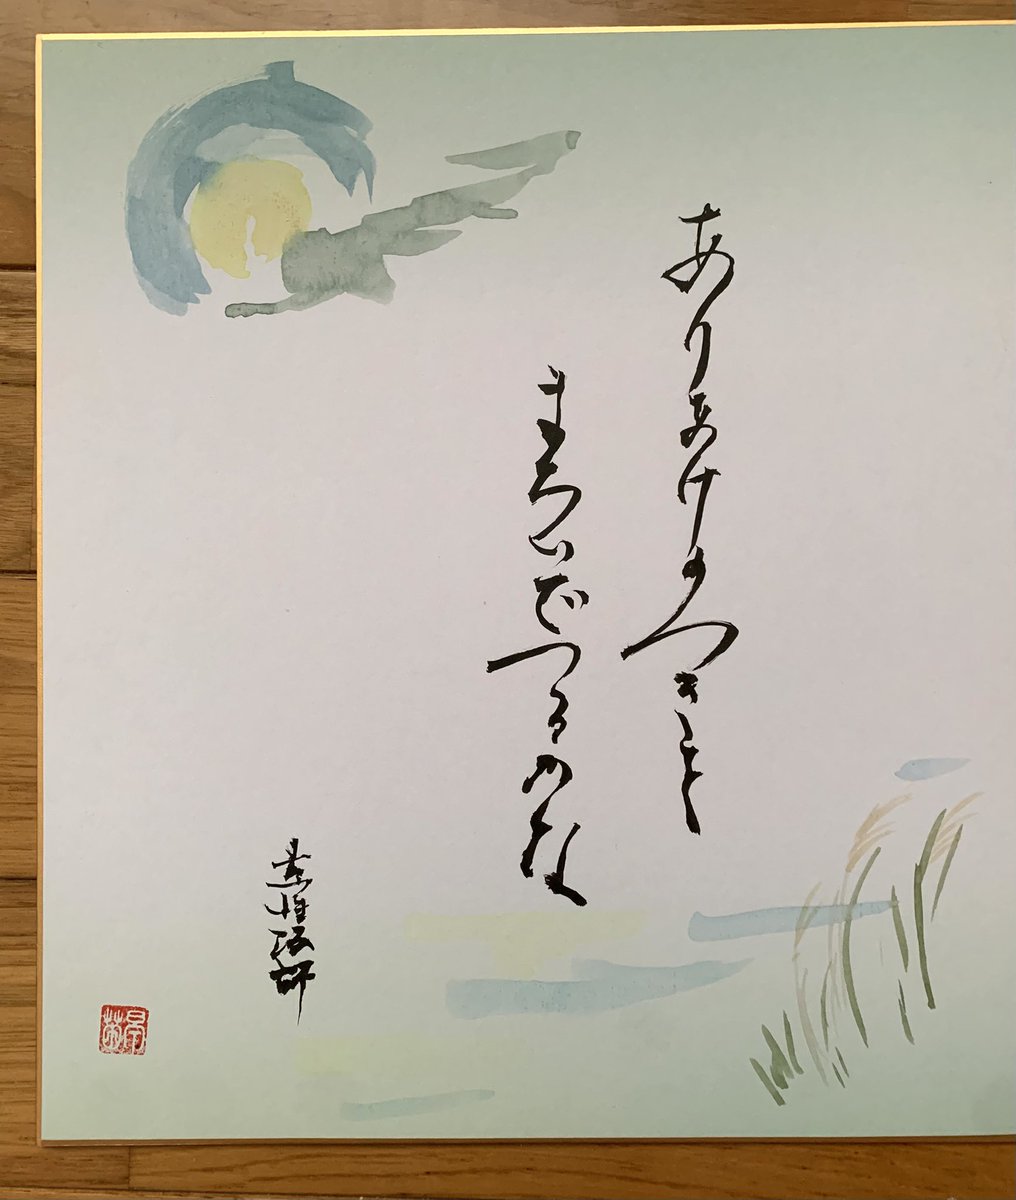 ありあけのつきを
まちいでつるかな
素性法師